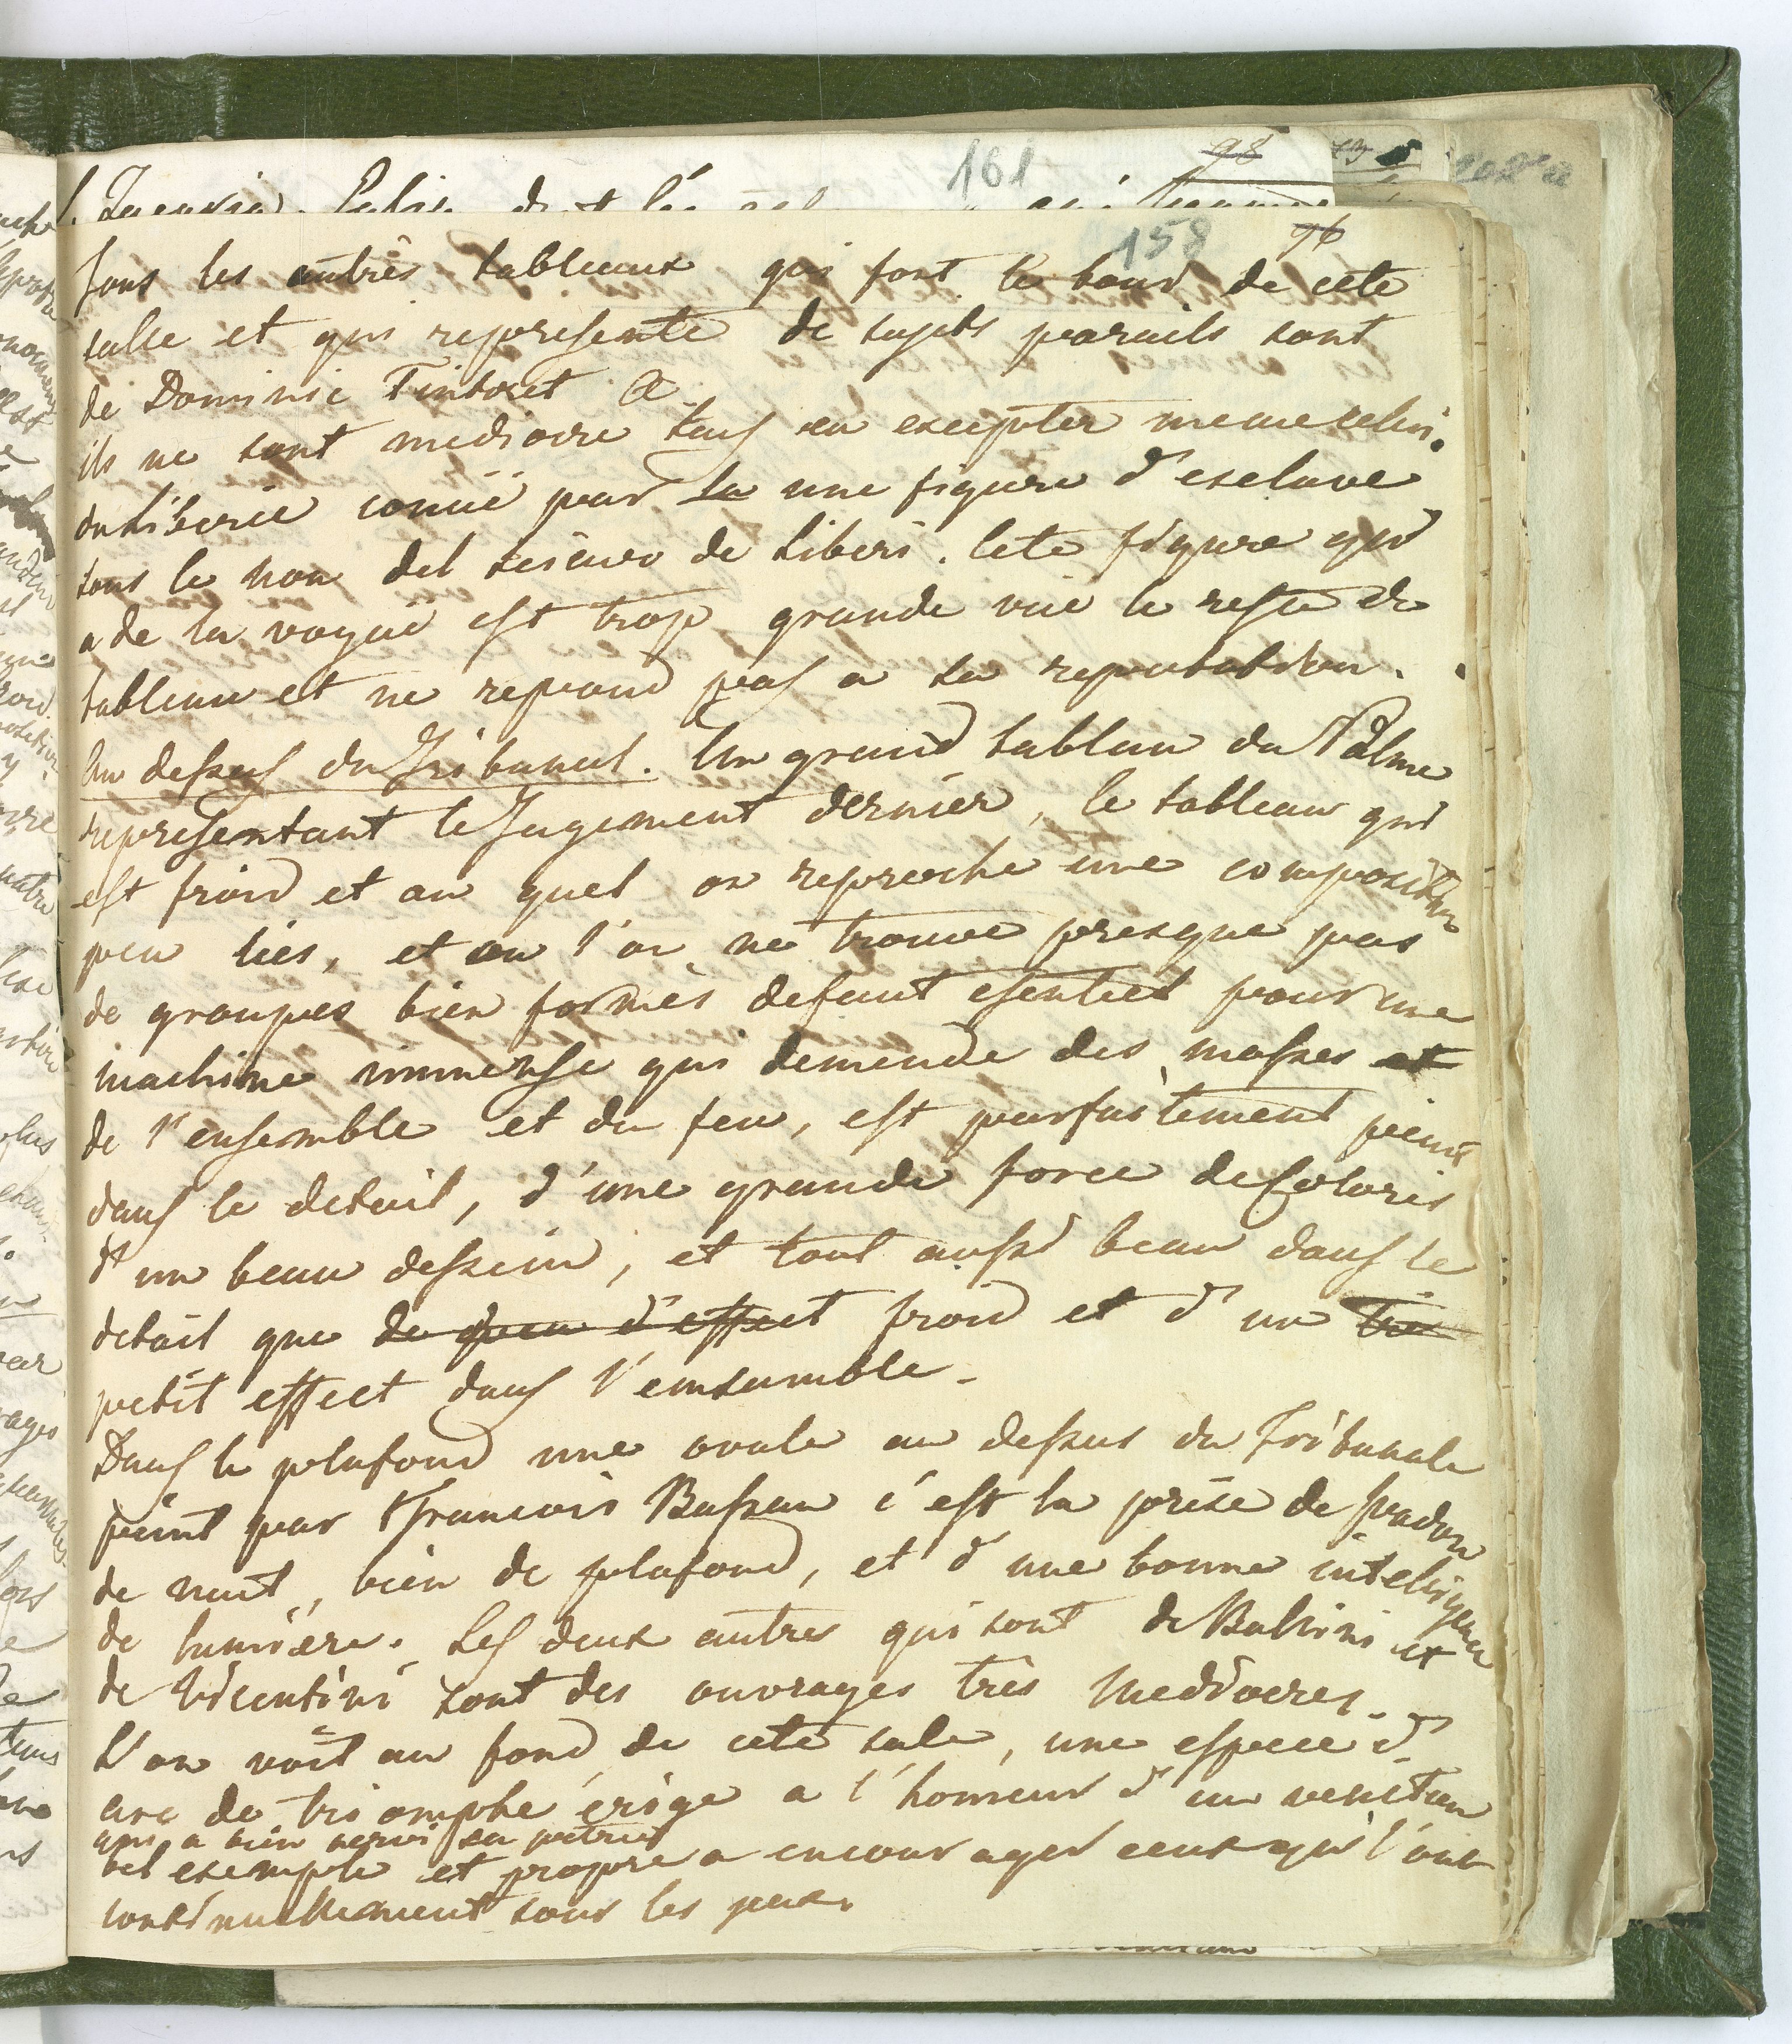 161 98
158 96
tous les autres tableaux qui font le tour de cete
salle et qui represente de sujets pareils sont
de Dominic Tintoret
ils ne sont mediocre sans en excepter meme celui
du Liberie conüe par la une figure d'esclave
sous le non del de Liberi. Cete figure qui
a de la vogüe est trop grande vüe le reste du
tableau et ne repond pas a sa reputation.
Au dessus du Tribunal. Un grand tableau du Palme
representant le Jugement dernier, le tableau qui
est froid et au quel on reproche une composition
peu liés, et ou l'on ne trouve presque pas
de groupes bien formès defaut esentiel pour une
machine immense qui demende des masses et
de l'ensemble et du feu, est parfaitement peint
dans le detail, d'une grande force de Coloris
d'un beau dessein, et tout aussi beau dans le
detail que de peu d'effect froid et d'un tres
petit effect dans l'emsamble.
Dans le plafond une ovale au dessus du Tribunale
peint par François Bassan c'est la prise de Padou
de nuit, bien de plafond, et d'une bonne inteligence
de lumiere. Les deux autres qui sont de Balini et
de Vicentini sont des ouvrages très mediocres.
L'on voit au fond de cete sale, une espece d'
arc de triomphe érigé a l'honeur d'un venitien
qui a bien servi sa patrie
bel exemple et propre a encourager ceux qui l'ont
continuellement sous les yeux.